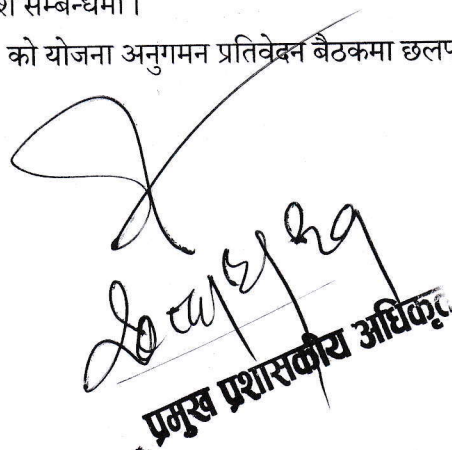 श सम्बन्धमा।
को योजना अनुगमन प्रतिवेदन बैठकमा छलप
प्रमुख प्रशासकीय अधिकृत